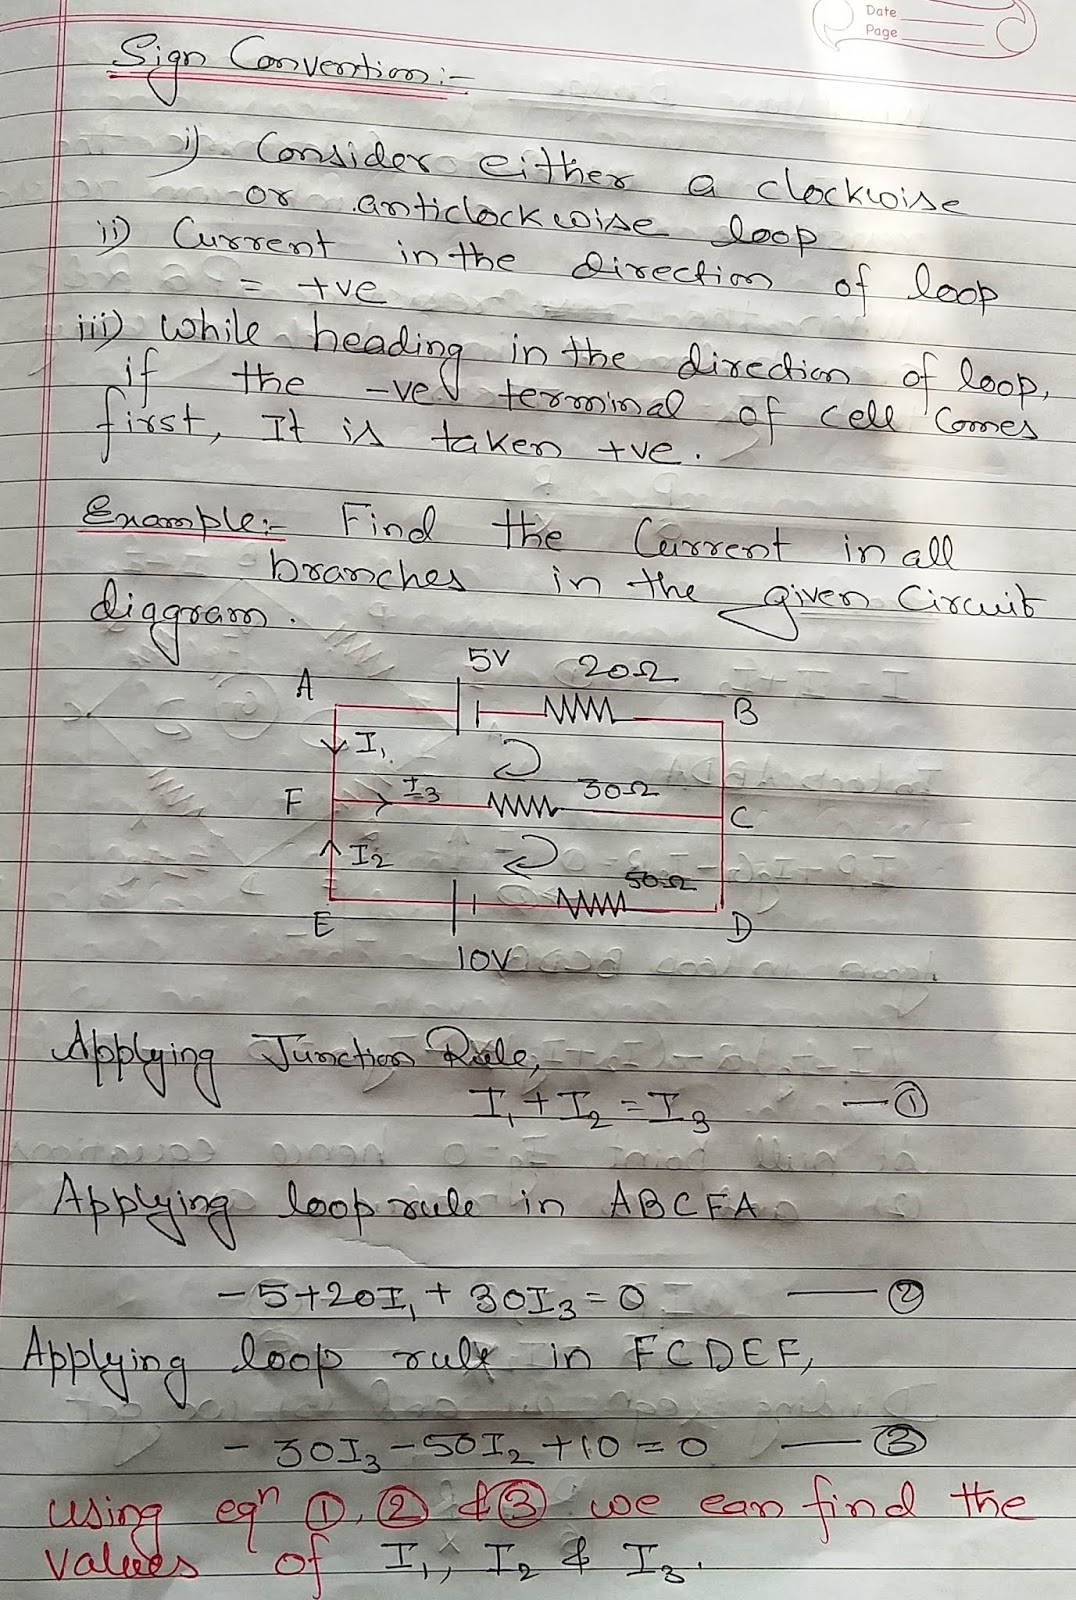 Date
Page
Sign Convention:-
i) Consider either a clockwise
or anticlockwise loop
ii) Current in the direction of loop
= +ve
iii) While heading in the direction of loop,
if the -ve terminal of cell comes
first, It is taken +ve.
Example:- Find the Current in all
branches in the given Circuit
diggram.
5V 20Ω
A B
I₁
F I₃ 30Ω C
I₂
50Ω
E D
10V
Applying Junction Rule,
I₁ + I₂ = I₃ —①
Applying loop rule in ABCFA
- 5+20I₁ + 30I₃ = 0 —②
Applying loop rule in FCDEF,
- 30I₃ - 50I₂ + 10 = 0 —③
using eqⁿ ①, ② & ③ we can find the
values of I₁, I₂ & I₃.